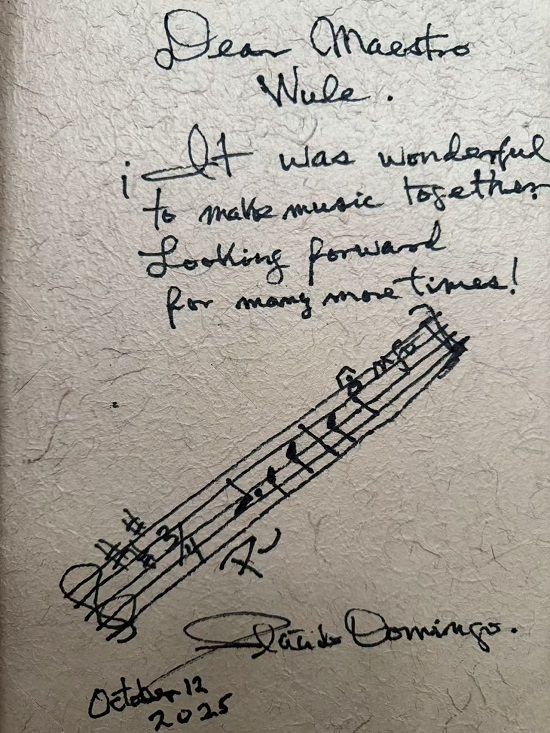 Dear Maestro
Wule.
¡It was wonderful
to make music together.
Looking forward
for many more times!
3/4
Plácido Domingo.
October 12
2025